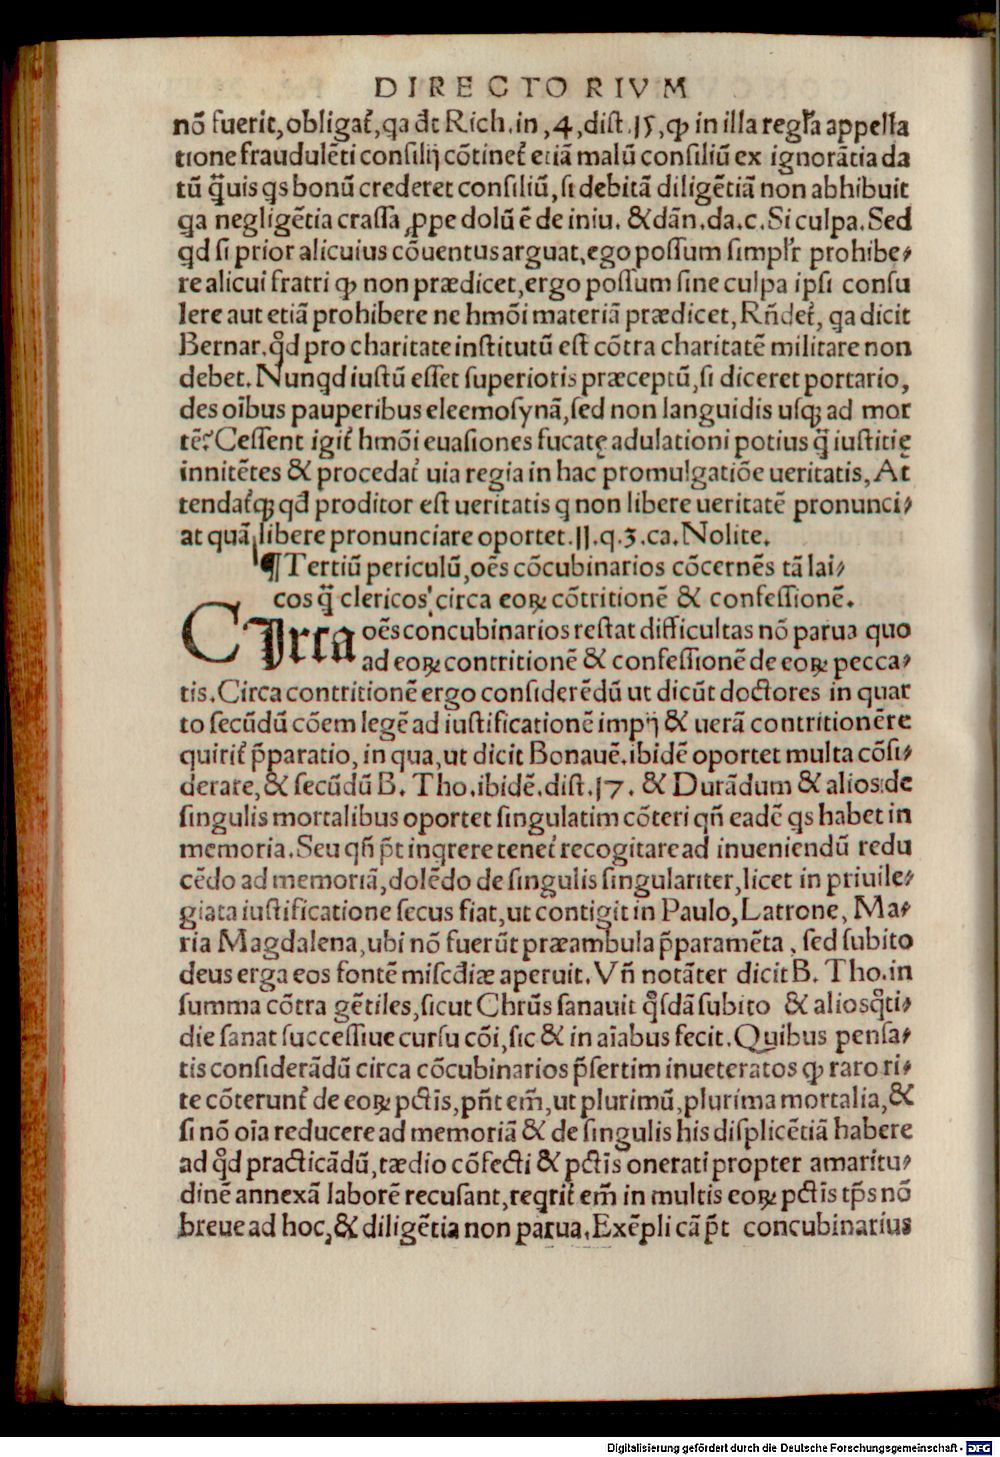 DIRECTORIVM
nō fuerit, obligat᷑, qa dr̄ Rich. in, 4, dist. 15, ꝙ in illa regl̃a appella
tione fraudulēti consilij cōtinet᷑ etiā malū consiliū ex ignorātia da
tū q̃uis qs bonū crederet consiliū, si debitā diligētiā non abhibuit
qa negligētia crassa ꝓpe dolū ē de iniu. & dān. da. c. Si culpa. Sed
qd si prior alicuius cōuentus arguat, ego possum simpl̃r prohibe⸗
re alicui fratri ꝙ non prædicet, ergo possum sine culpa ipsi consu
lere aut etiā prohibere ne hmōi materiā prædicet, Rñdet᷑, qa dicit
Bernar. qd̉ pro charitate institutū est cōtra charitatē militare non
debet. Nunqd iustū esset superioris præceptū, si diceret portario,
des oĩbus pauperibus eleemosynā, sed non languidis usqꝫ ad mor
tē? Cessent igit᷑ hmōi euasiones fucatę adulationi potius q̃ iustitię
innitētes & procedat᷑ uia regia in hac promulgatiōe ueritatis, At
tendat᷑qꝫ qd̄ proditor est ueritatis q non libere ueritatē pronunci⸗
at quā libere pronunciare oportet. 11. q. 3. ca. Nolite.
¶ Tertiū periculū, oēs cōcubinarios cōcernēs tā lai⸗
cos q̃ clericos, circa eoꝝ cōtritionē & confessionē.
CIrca oēs concubinarios restat difficultas nō parua quo
ad eoꝝ contritionē & confessionē de eoꝝ pecca⸗
tis. Circa contritionē ergo considerēdū ut dicūt doctores in quar
to secūdū cōem legē ad iustificationē impij & uerā contritionē re
quirit᷑ p̄paratio, in qua, ut dicit Bonauē. ibidē oportet multa cōsi⸗
derare, & secūdū B. Tho. ibidē. dist. 17. & Durādum & alios de
singulis mortalibus oportet singulatim cōteri qñ eadē qs habet in
memoria. Seu qñ p̄t inqrere tenet᷑ recogitare ad inueniendū redu
cēdo ad memoriā, dolēdo de singulis singulariter, licet in priuile⸗
giata iustificatione secus fiat, ut contigit in Paulo, Latrone, Ma⸗
ria Magdalena, ubi nō fuerūt præambula p̄paramēta, sed subito
deus erga eos fontē misc̄diæ aperuit. Vñ notāter dicit B. Tho. in
summa cōtra gētiles, sicut Chrūs sanauit qͦsdā subito & alios qͦti⸗
die sanat successiue cursu cōi, sic & in aĩabus fecit. Quibus pensa⸗
tis considerādū circa cōcubinarios p̄sertim inueteratos ꝙ raro ri⸗
te cōterunt᷑ de eoꝝ pctĩs, pñt em̄, ut plurimū, plurima mortalia, &
si nō oĩa reducere ad memoriā & de singulis his displicētiā habere
ad qd̉ practicādū, tædio cōfecti & pctĩs onerati propter amaritu⸗
dinē annexā laborē recusant, reqrit᷑ em̄ in multis eoꝝ pctĩs tp̄s nō
breue ad hoc, & diligētia non parua. Exēpli cā p̄t concubinarius
Digitalisierung gefördert durch die Deutsche Forschungsgemeinschaft - DFG